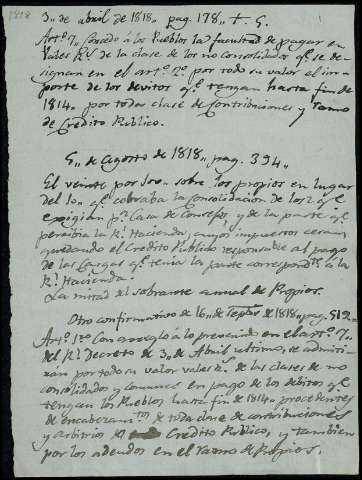 1818
3,, de abril de 1818,, pag. 178,, t. 5.
Artº. 7,, Concedo á los Pueblos la facultad de pagar en
Vales Rs. de la clase de los no consolidados qe. se de-
signan en el artº. 2º. por todo su valor el im-
porte de los devitos qe. tengan hasta fin de
1814,, por todas clase de Contribuciones y ramo
de Credito Publico.
5,, de agosto de 1818,, pag. 394,,
El veinte por 100,, sobre los propios en lugar
del 10,, qe. cobraba la Consolidacion de los 2 qe.
exigian pa. Casa de Consejos, y de la parte qe.
percibia la Rl. Hacienda, cuyos impuestos cesan
quedando el Credito Publico responsable al pago
de las Cargas qe. tenia la parte correspondte. á la
Rl. Hacienda.
La mitad del sobrante anual de Propios.
Otro confirmativo de 16,, de Sepbre. de 1818,, pag. 512,,
Artº. 1ro. Con arreglo á lo prevenido en el artº. 7,,
del Rl. Decreto de 3,, de Abril ultimo, se admiti-
rán por todo su valor vales Rs. de las clases de no
consolidados y comunes en pago de los debitos qe.
tengan los Pueblos hasta fin de 1814,, procedentes
de encabezamtos. de toda clase de contribuciones
y arbitrios Credito Publico, y tambien
por los adeudos en el ramo de Propios.